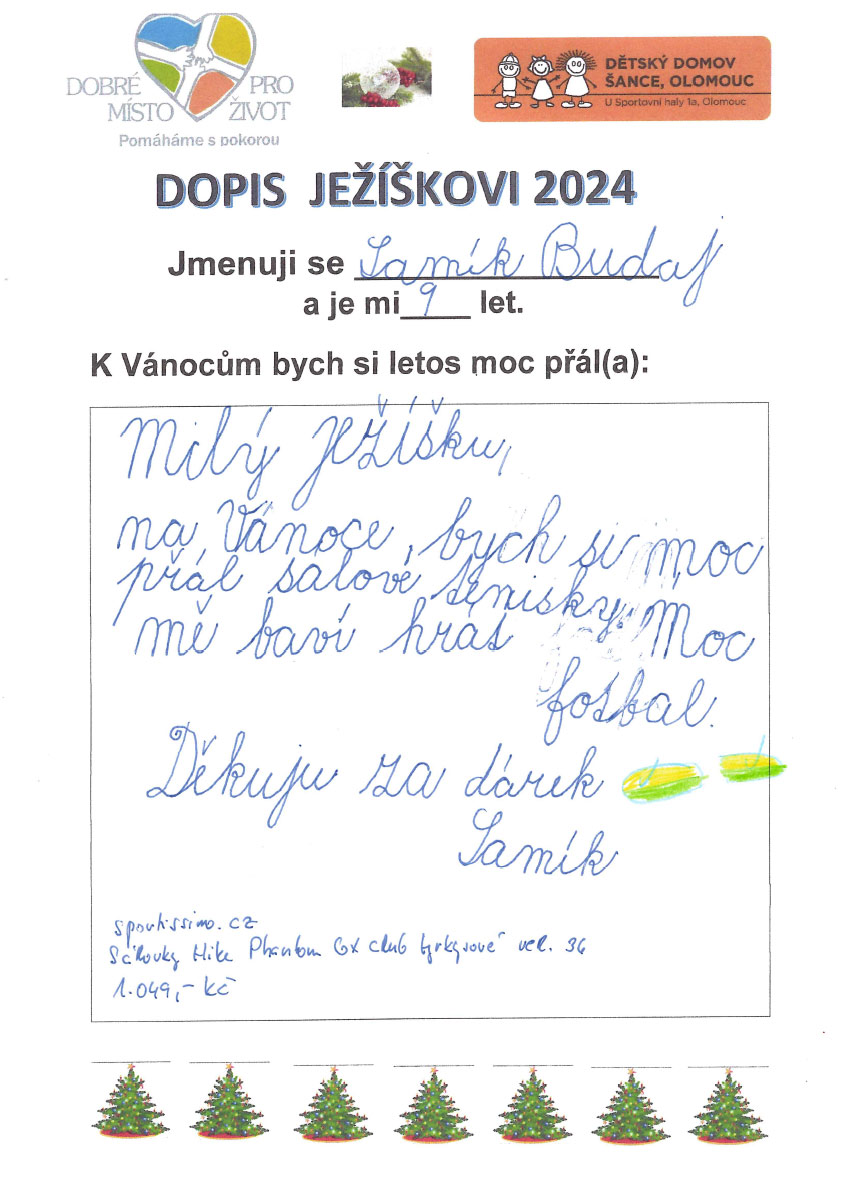 DOBRÉ PRO
MÍSTO ŽIVOT
Pomáháme s pokorou
DĚTSKÝ DOMOV
ŠANCE, OLOMOUC
U Sportovní haly 1a, Olomouc
DOPIS JEŽÍŠKOVI 2024
Jmenuji se Samík Budaj
a je mi 9 let.
K Vánocům bych si letos moc přál(a):
Milý Ježíšku,
na Vánoce, bych si moc
přál salové tenisky. Moc
mě baví hrát
fotbal.
Děkuju za dárek
Samík
sportissimo.cz
Sálovky Nike Phantom GX club tyrkysové vel. 36
1.049,- Kč